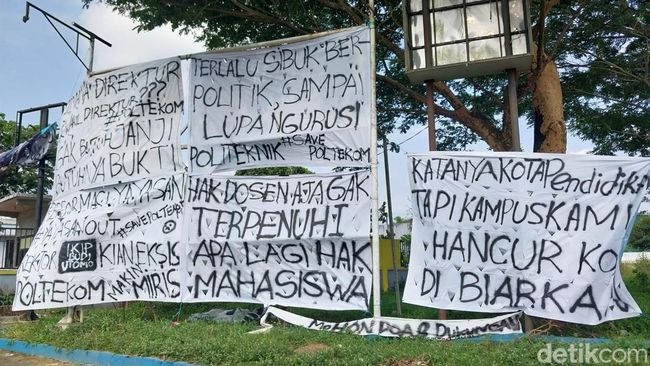 DIREKTUR
DIREKTUR???
POLTEKOM
JANJI
BUTUHNYA BUKTI
YAYASAN
OUT
#SAVEPOLTEKOM
IKIP
BUDI
UTOMO
KIAN EKSIS
POLTEKOM MAKIN MIRIS
TERLALU SIBUK BER
POLITIK, SAMPAI
LUPA NGURUSI
POLITEKNIK #SAVE
POLTEKOM
HAK DOSEN AJA GAK
TERPENUHI
APA LAGI HAK
MAHASISWA
KATANYA KOTA Pendidika
TAPI KAMPUS KAMI
HANCUR KO
DI BIARKA
MOHON DOA & DUKUNGAN
detikcom